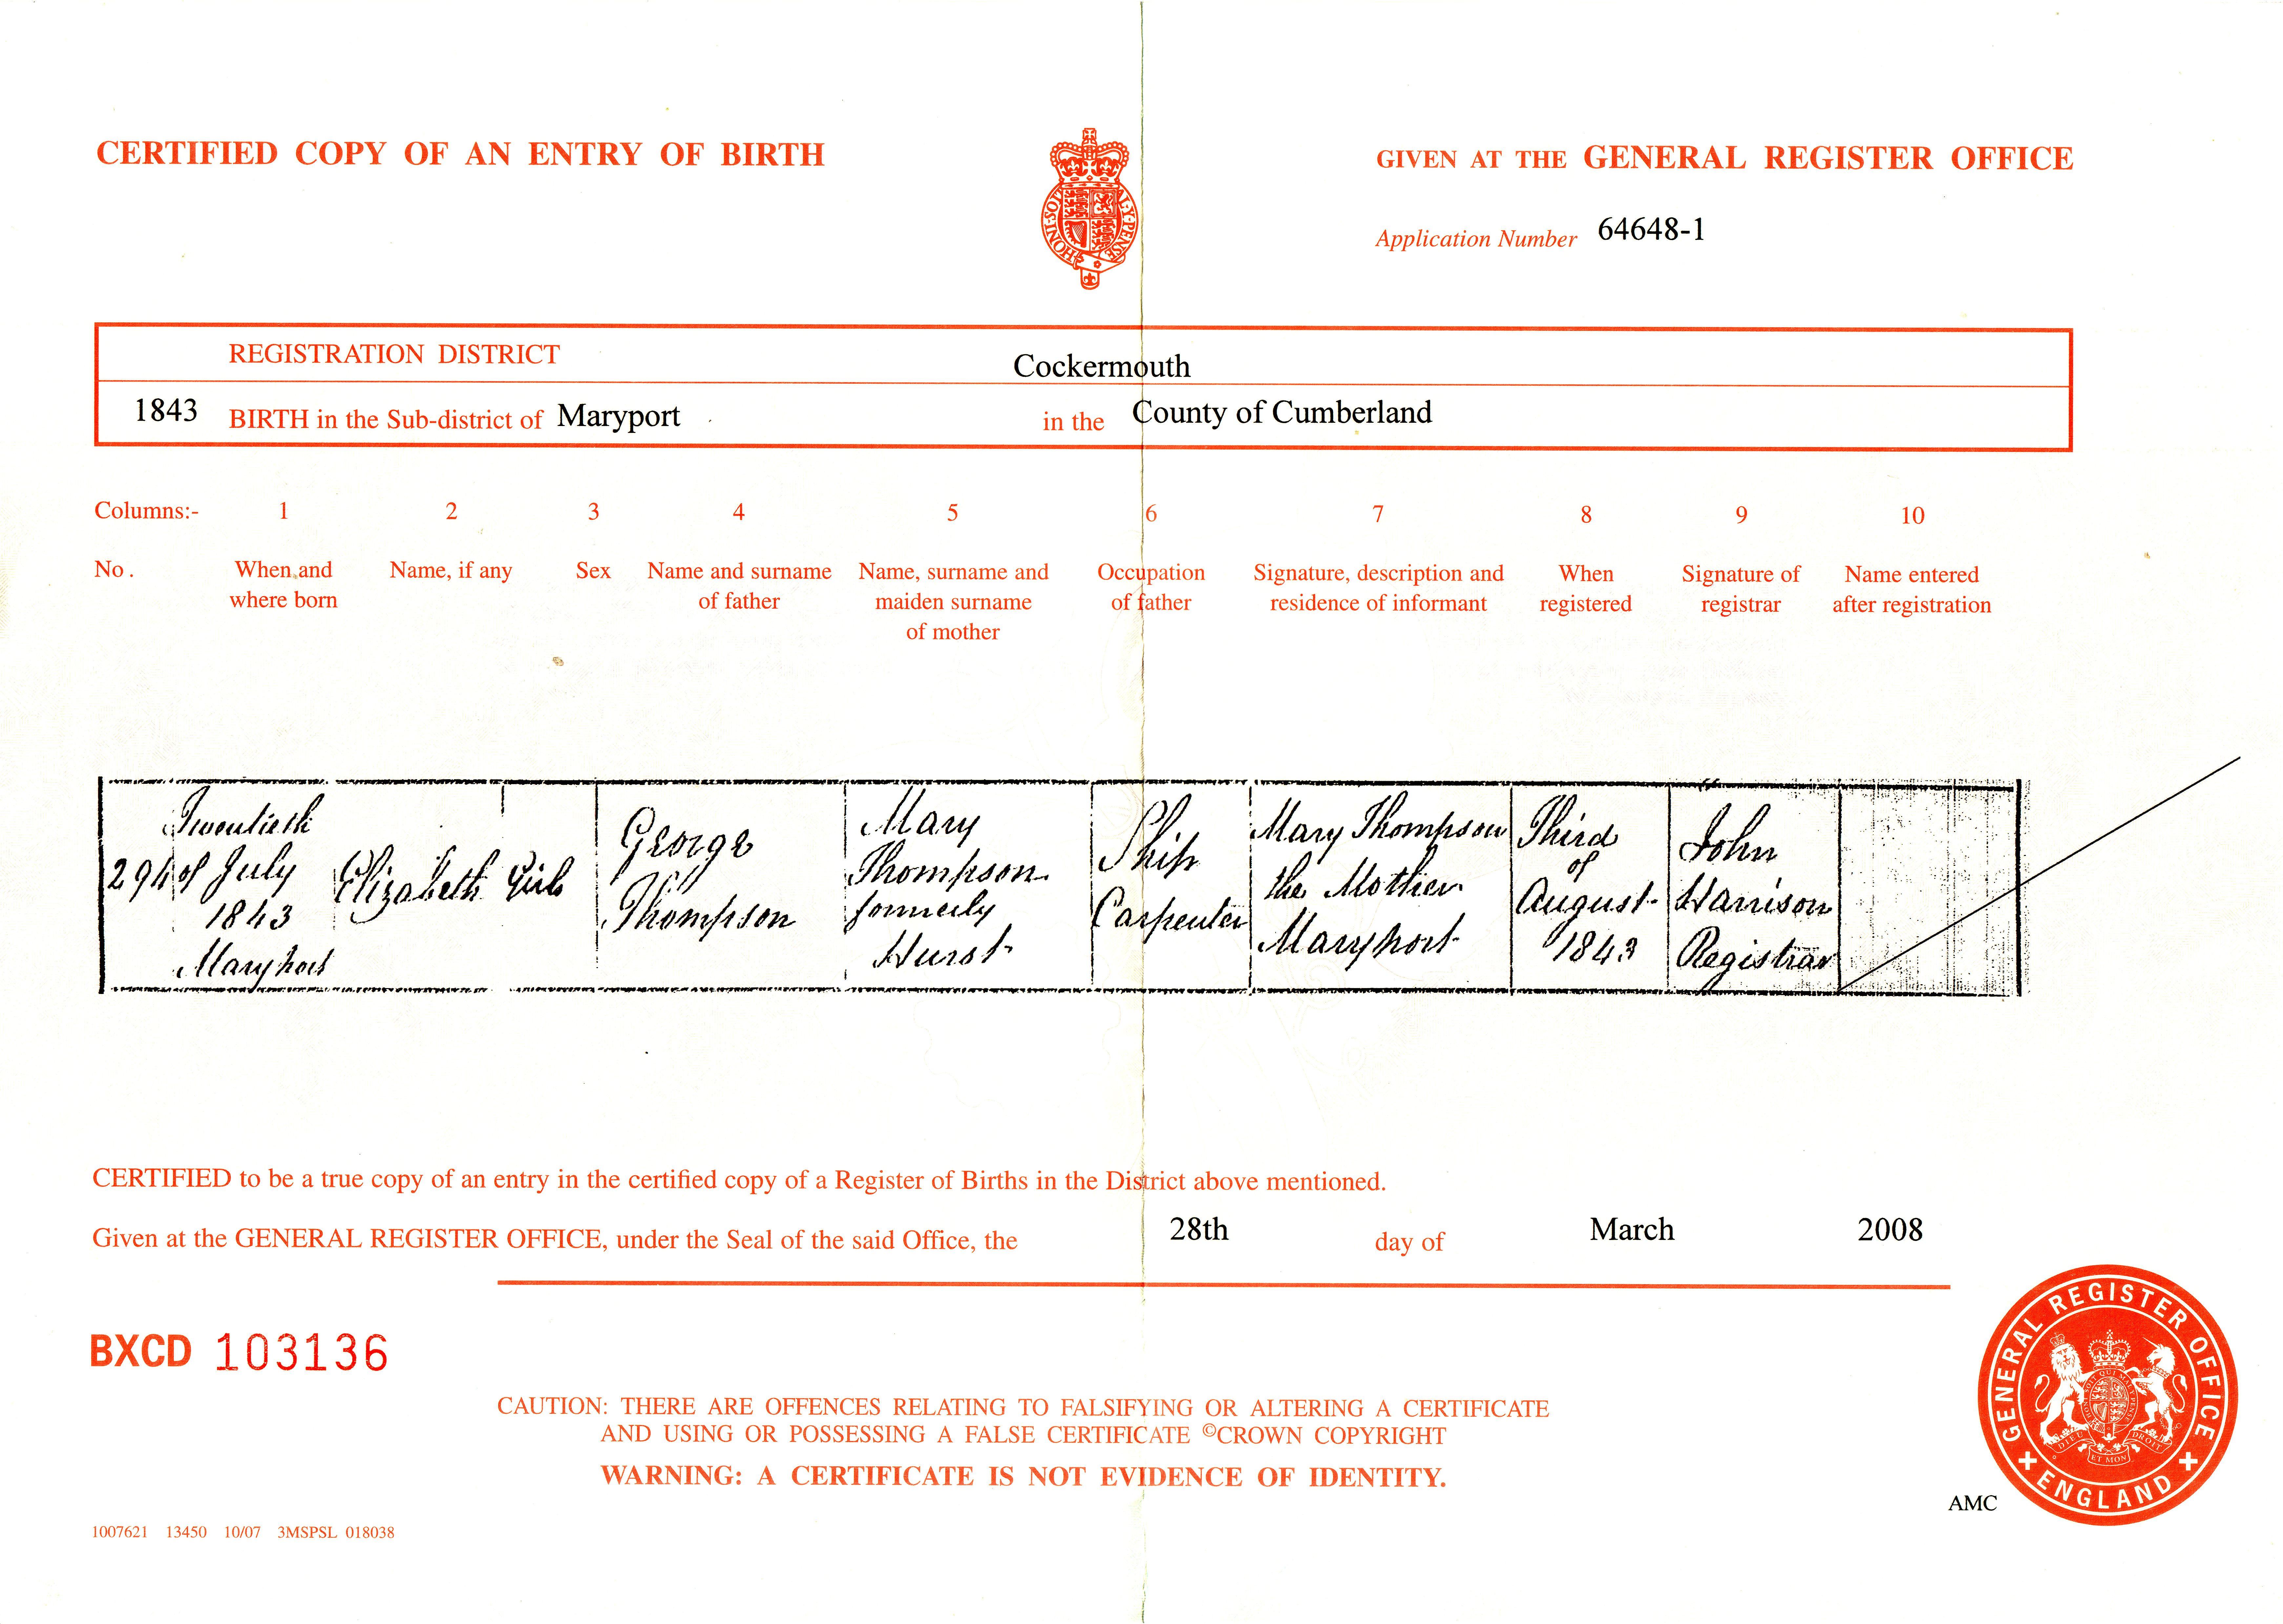 CERTIFIED COPY OF AN ENTRY OF BIRTH
GIVEN AT THE GENERAL REGISTER OFFICE
HONI·SOIT·QUI·MAL·Y·PENSE
Application Number 64648-1
REGISTRATION DISTRICT Cockermouth
1843 BIRTH in the Sub-district of Maryport in the County of Cumberland
Columns:- 1 2 3 4 5 6 7 8 9 10
No. When and where born
Name, if any
Sex
Name and surname of father
Name, surname and maiden surname of mother
Occupation of father
Signature, description and residence of informant
When registered
Signature of registrar
Name entered after registration
294
Twentieth
of July
1843
Maryport
Elizabeth
Girl
George
Thompson
Mary
Thompson
formerly
Hurst
Ship
Carpenter
Mary Thompson
the Mother
Maryport
Third
of
August
1843
John
Harrison
Registrar
CERTIFIED to be a true copy of an entry in the certified copy of a Register of Births in the District above mentioned.
Given at the GENERAL REGISTER OFFICE, under the Seal of the said Office, the 28th day of March 2008
BXCD 103136
CAUTION: THERE ARE OFFENCES RELATING TO FALSIFYING OR ALTERING A CERTIFICATE
AND USING OR POSSESSING A FALSE CERTIFICATE ©CROWN COPYRIGHT
WARNING: A CERTIFICATE IS NOT EVIDENCE OF IDENTITY.
GENERAL REGISTER OFFICE
ENGLAND
DIEU ET MON DROIT
AMC
1007621 13450 10/07 3MSPSL 018038